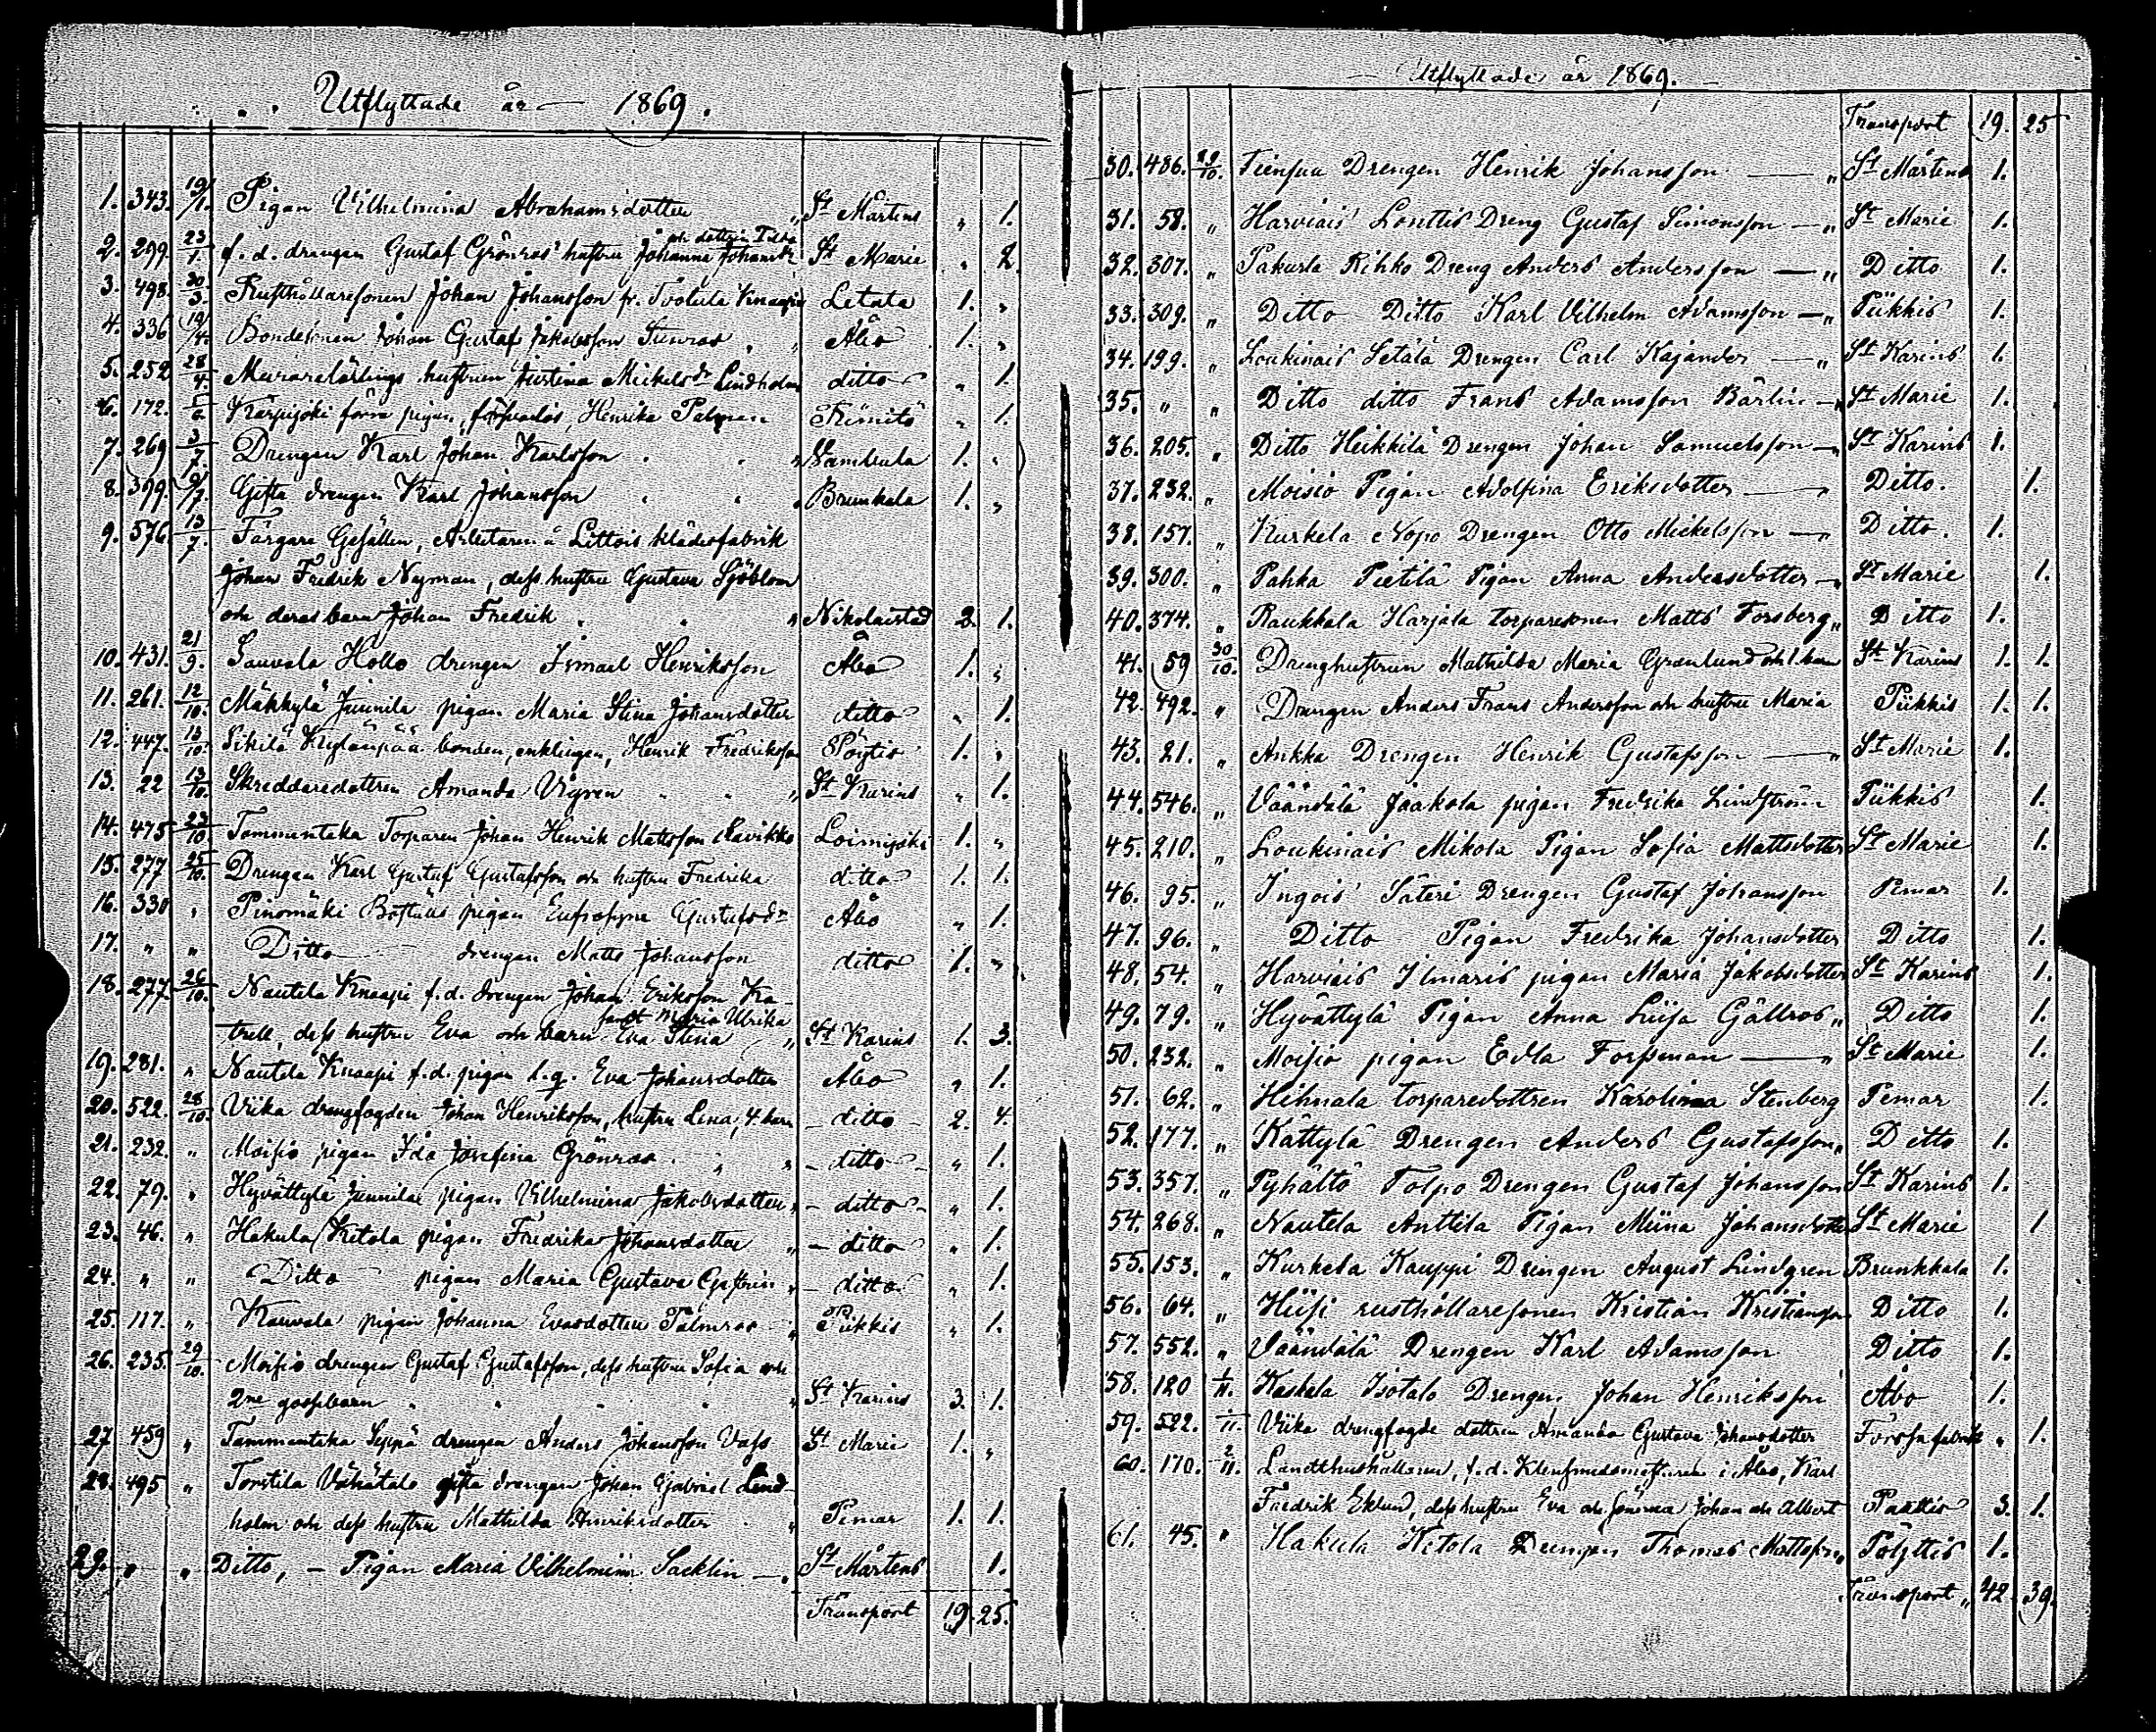 Utflyttade år 1869.
1. 343. 19/1. Pigan Vilhelmina Abrahamsdotter " St Mårtens " 1.
och dottren Ida
2. 299. 23/1. f. d. drengen Gustaf Grönroos' hustru Johanna Johansdr St Marie " 2.
3. 498. 30/3. Rusthållaresonen Johan Johansson fr. Tvotula Knaapi Letala 1. "
4. 336 19/4. Bondesonen Johan Gustaf Jakobsson Stenroos " Åbo 1. "
5. 252 28/4. Murarelärlings hustrun Justina Mickelsdr Lindholm ditto " 1.
6. 172. 5/6. Karpijoki förra pigan, försvarslös, Henrika Palman Kimito " 1.
7. 269 3/7. Drengen Karl Johan Karlsson " " Vambula 1. "
8. 399. 9/7. Gifta drengen Karl Johansson " " Brunkala 1. "
9. 576 13/7. Färgare Gesällen, Arbetaren å Littois klädesfabrik
Johan Fredrik Nyman, dess hustru Gustava Sjöblom
och deras barn Johan Fredrik " " Nikolaistad 2. 1.
10. 431. 21/9. Sauvala Hollo drengen Ismael Henriksson Åbo 1. "
11. 261. 12/10. Mäkkylä Junnila pigan Maria Stina Johansdotter ditto " 1.
12. 447. 13/10. Sikilä Kylänpää bonden, enklingen, Henrik Fredriksson Pöytis 1. "
13. 22 13/10. Skreddaredottren Amanda Vigren " " St Karins " 1.
14. 475 23/10. Tammentaka Torparen Johan Henrik Mattsson Lavikko Loimijoki 1. "
15. 277 25/10. Drengen Karl Gustaf Gustafsson och hustru Fredrika ditto 1. 1.
16. 330 " Pinomäki Boställe pigan Eufrosyne Gustafsdr Åbo " 1.
17. " " Ditto drengen Matts Johansson ditto 1. "
18. 277. 26/10. Nautela Knaapi f. d. drengen Johan Eriksson Ka-
samt Maria Ulrika
trell, dess hustru Eva och barn Eva Stina " St Karins 1. 3.
19. 281. " Nautela Knaapi f. d. pigan l. q. Eva Johansdotter Åbo " 1.
20. 522. 28/10. Viika drengfogden Johan Henriksson, hustru Lena, 4 barn - ditto - 2. 4.
21. 232. " Moisio pigan Ida Josefina Grönroos " " - ditto - " 1.
22. 79. " Hyvättylä Junnila pigan Vilhelmina Jakobsdotter " - ditto - " 1.
23. 46. " Hakula Ketola pigan Fredrika Johansdotter " - ditto " 1.
24. " " Ditto pigan Maria Gustava Gastrin " - ditto " 1.
25. 117. " Kauvala pigan Johanna Evasdotter Palmroos " Piikkis " 1.
26. 235. 29/10. Moisio drengen Gustaf Gustafsson, dess hustru Sofia och
2ne gossebarn " " " St Karins 3. 1.
27 459 " Tammentaka Seppä drengen Anders Johansson Vass St Marie 1. "
28. 495 " Torstila Vähätalo gifta drengen Johan Gabriel Lind-
holm och dess hustru Mathilda Henriksdotter " Pemar 1. 1.
29. " " Ditto, - Pigan Maria Vilhelmina Sacklin - " St Mårtens 1.
Transport 19. 25.
Utflyttade år 1869.
Transport 19. 25
30. 486. 29/10. Tiensuu Drengen Henrik Johansson " St Mårtens 1.
31. 58. " Harviais Lonttis Dreng Gustaf Simonsson " St Marie 1.
32. 307. " Pakurla Rihko Dreng Anders Andersson " Ditto 1.
33. 309. " Ditto Ditto Karl Vilhelm Adamsson " Piikkis 1.
34. 199. " Loukinais Setälä Drengen Carl Kajander " St Karins 1.
35. " " Ditto ditto Frans Adamsson Bärlin " St Marie 1.
36. 205. " Ditto Heikkilä Drengen Johan Samuelsson " St Karins 1.
37. 232. " Moisio Pigan Adolfina Eriksdotter " Ditto. 1.
38. 157. " Kurkela Nopo Drengen Otto Mickelsson " Ditto. 1.
39. 300. " Pahka Pietilä Pigan Anna Andersdotter " St Marie 1.
40. 374. " Raukkala Harjala torparesonen Matts Forsberg " Ditto 1.
41. 59 30/10. Drenghustrun Mathilda Maria Grönlund och 1. barn St Karins 1. 1.
42. 492. " Drengen Anders Frans Andersson och hustru Maria Piikkis 1. 1.
43. 21. " Ankka Drengen Henrik Gustafsson " St Marie 1.
44. 546. " Väändälä Jaakola pigan Fredrika Lindström Piikkis 1.
45. 210. " Loukinais Mikola Pigan Sofia Mattsdotter St Marie 1.
46. 95. " Ingois Säteri Drengen Gustaf Johansson Pemar 1.
47. 96. " Ditto Pigan Fredrika Johansdotter Ditto 1.
48. 54. " Harviais Ilmaris pigan Maria Jakobsdotter St Karins 1.
49. 79. " Hyvättylä Pigan Anna Luisa Gällroos " Ditto 1.
50. 232. " Moisio pigan Edla Forsman " St Marie 1.
51. 62. " Hihnala torparedottren Karolina Stenberg Pemar 1.
52. 177. " Kättylä Drengen Anders Gustafsson " Ditto 1.
53. 357. " Pyhältö Tolpo Drengen Gustaf Johansson St Karins 1.
54. 268. " Nautela Anttila Pigan Miina Johansdotter St Marie 1
55. 153. " Kurkela Kauppi Drengen August Lindgren Brunkkala 1.
56. 64. " Hiisi rusthållaresonen Kristian Kristiansson Ditto 1.
57. 552. " Väändälä Drengen Karl Adamsson Ditto 1.
58. 120 1/11. Kaskala Isotalo Drengen Johan Henriksson Åbo 1.
59. 522. 1/11. Viika drengfogde dottren Amanda Gustava Johansdotter Forssa fabrik " 1.
60. 170. 2/11. Landthushållaren, f. d. Klensmedsmästaren i Åbo, Karl
Fredrik Eklund, dess hustru Eva och sönerna Johan och Albert Paattis 3. 1.
61. 45. " Hakula Ketola Drengen Thomas Mattsson " Pöyttis 1.
Transport " 42. 39.